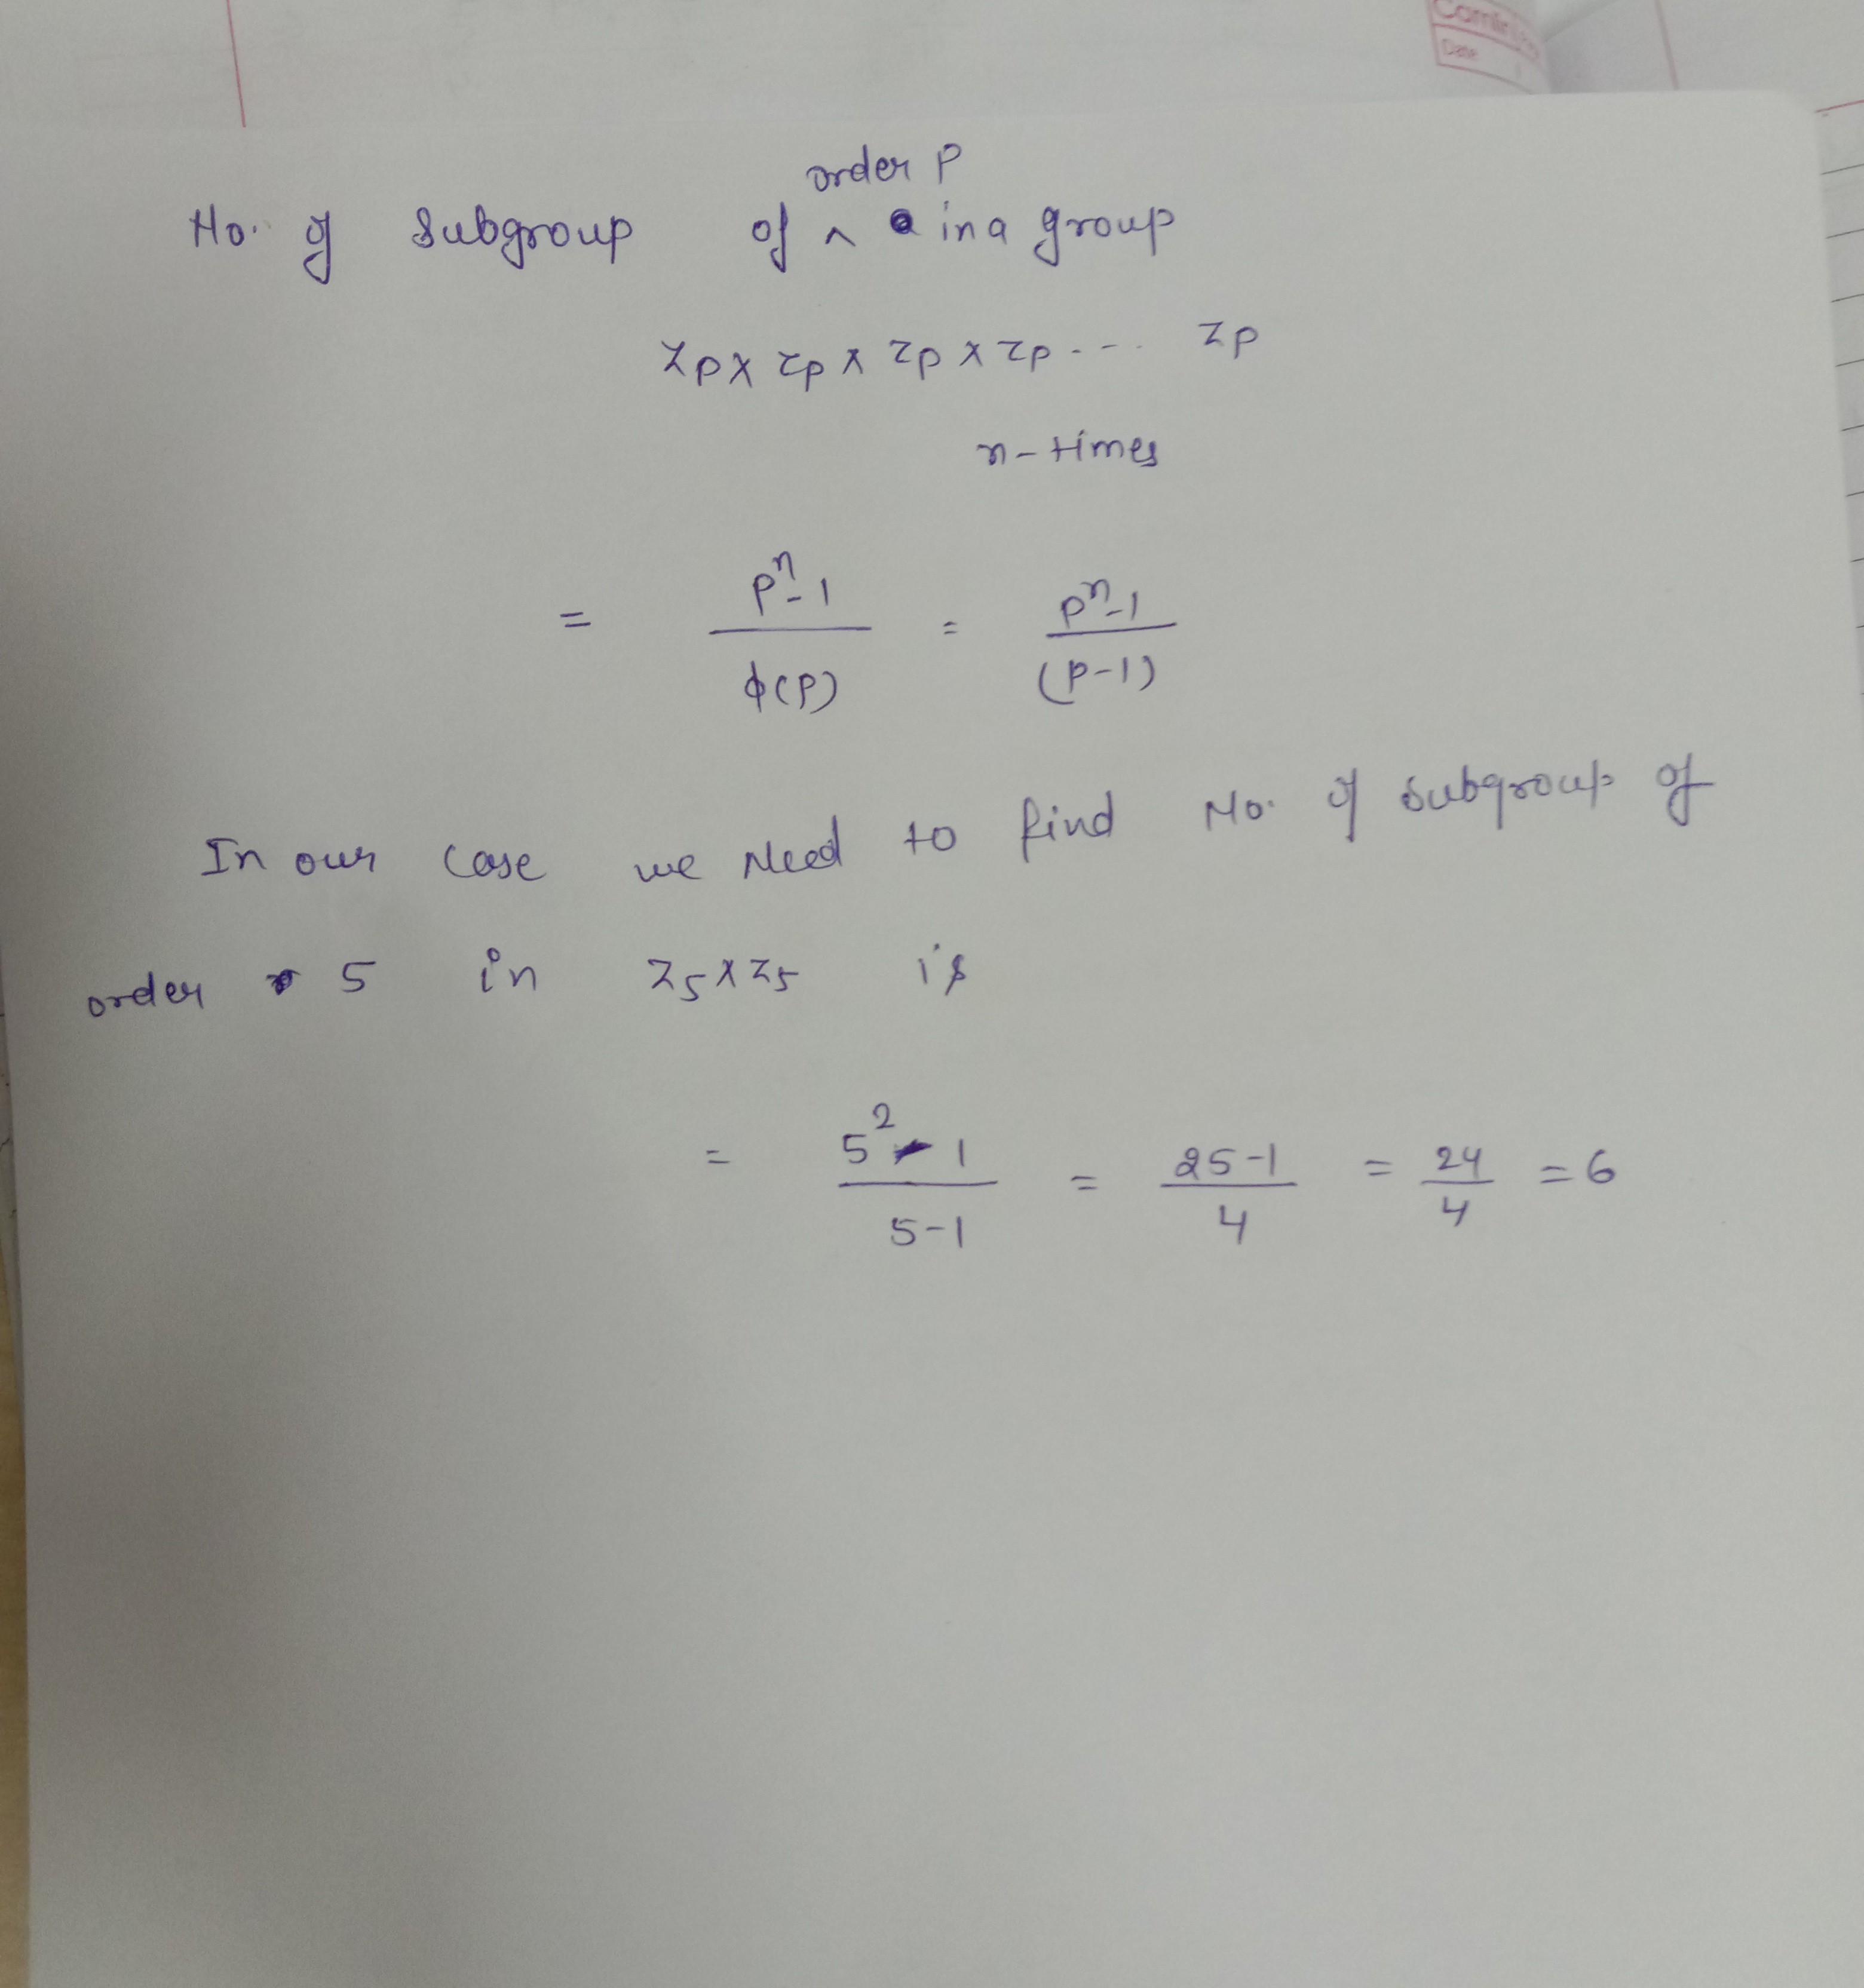 Date
order P
No. of Subgroup of ^ in a group
Zp x Zp x Zp x Zp --- Zp
n-times
= p^n-1 / ϕ(P) = p^n-1 / (p-1)
In our case we need to find No. of subgroup of
order 5 in Z5 x Z5 is
= 5^2 - 1 / 5-1 = 25-1 / 4 = 24 / 4 = 6